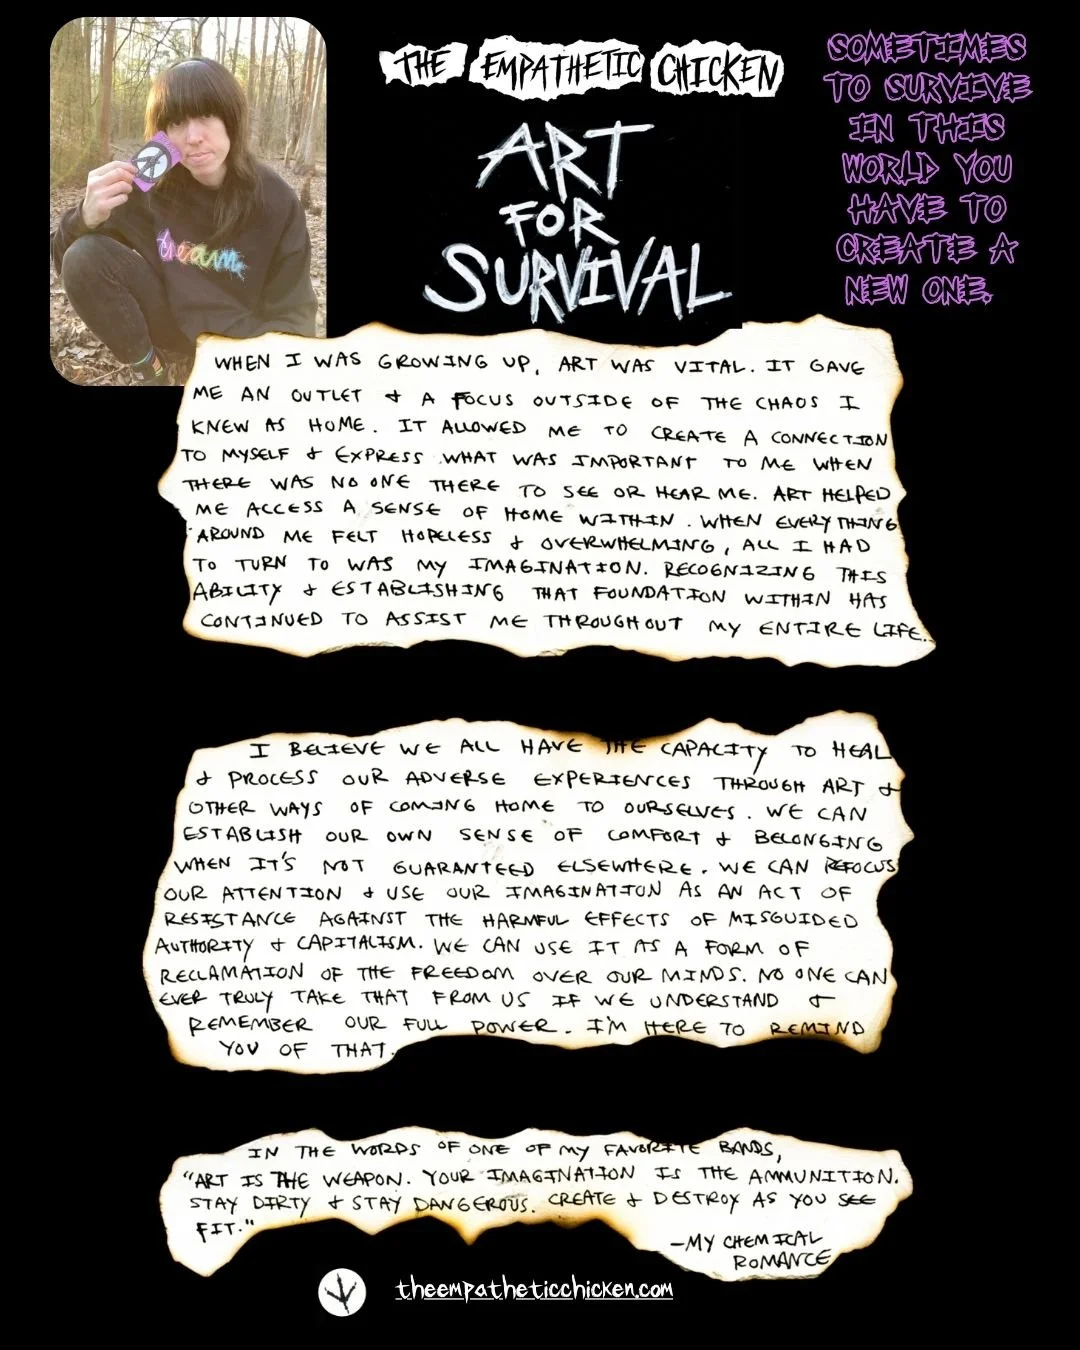 THE EMPATHETIC CHICKEN
ART
FOR
SURVIVAL
SOMETIMES
TO SURVIVE
IN THIS
WORLD YOU
HAVE TO
CREATE A
NEW ONE.
dream
WHEN I WAS GROWING UP, ART WAS VITAL. IT GAVE
ME AN OUTLET & A FOCUS OUTSIDE OF THE CHAOS I
KNEW AS HOME. IT ALLOWED ME TO CREATE A CONNECTION
TO MYSELF & EXPRESS WHAT WAS IMPORTANT TO ME WHEN
THERE WAS NO ONE THERE TO SEE OR HEAR ME. ART HELPED
ME ACCESS A SENSE OF HOME WITHIN. WHEN EVERYTHING
AROUND ME FELT HOPELESS & OVERWHELMING, ALL I HAD
TO TURN TO WAS MY IMAGINATION. RECOGNIZING THIS
ABILITY & ESTABLISHING THAT FOUNDATION WITHIN HAS
CONTINUED TO ASSIST ME THROUGHOUT MY ENTIRE LIFE.
I BELIEVE WE ALL HAVE THE CAPACITY TO HEAL
& PROCESS OUR ADVERSE EXPERIENCES THROUGH ART &
OTHER WAYS OF COMING HOME TO OURSELVES. WE CAN
ESTABLISH OUR OWN SENSE OF COMFORT & BELONGING
WHEN IT'S NOT GUARANTEED ELSEWHERE. WE CAN REFOCUS
OUR ATTENTION & USE OUR IMAGINATION AS AN ACT OF
RESISTANCE AGAINST THE HARMFUL EFFECTS OF MISGUIDED
AUTHORITY & CAPITALISM. WE CAN USE IT AS A FORM OF
RECLAMATION OF THE FREEDOM OVER OUR MINDS. NO ONE CAN
EVER TRULY TAKE THAT FROM US IF WE UNDERSTAND &
REMEMBER OUR FULL POWER. I'M HERE TO REMIND
YOU OF THAT.
IN THE WORDS OF ONE OF MY FAVORITE BANDS,
"ART IS THE WEAPON. YOUR IMAGINATION IS THE AMMUNITION.
STAY DIRTY & STAY DANGEROUS. CREATE & DESTROY AS YOU SEE
FIT."
-MY CHEMICAL
ROMANCE
theempatheticchicken.com